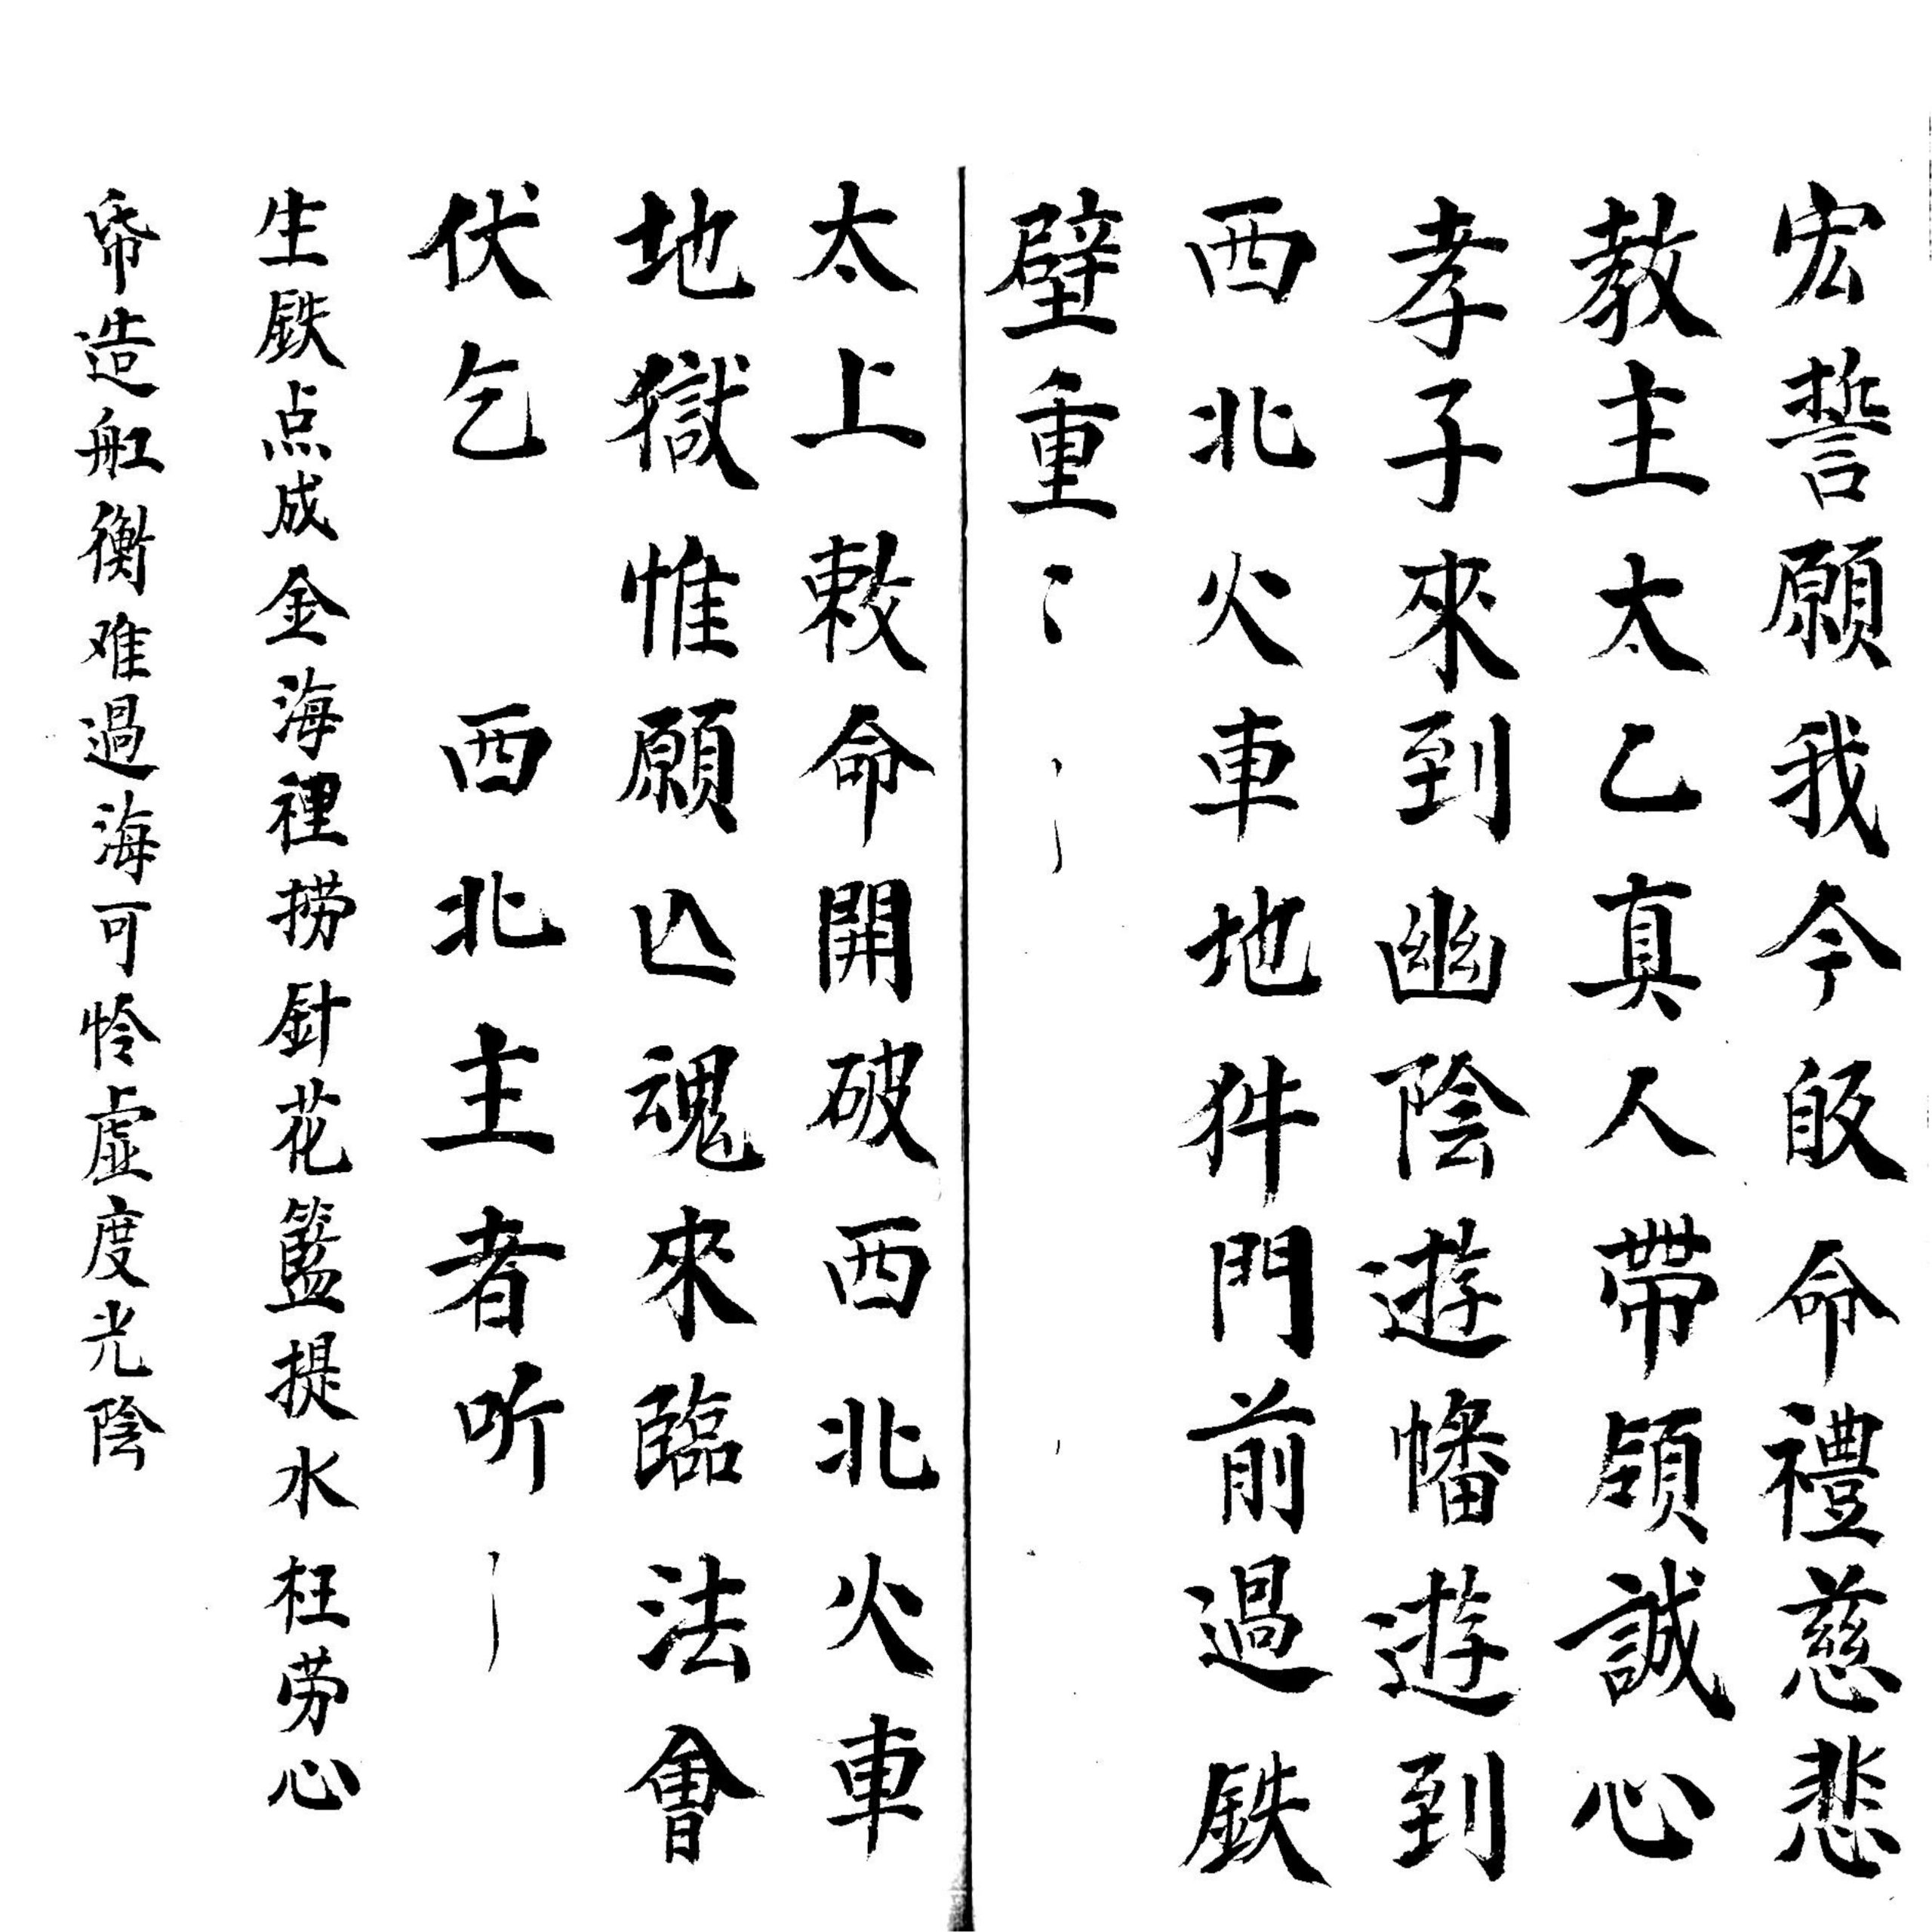 宏誓願我今皈命禮慈悲
教主太乙真人帶領誠心
孝子來到幽陰遊幡遊到
西北火車地件門前過鉄
壁重〻
太上敕命開破西北火車
地獄惟願亡魂來臨法會
伏乞 西北主者听
生鉄点成金海裡捞針花籃提水枉劳心
帋造舡衡难過海可怜虚度光陰